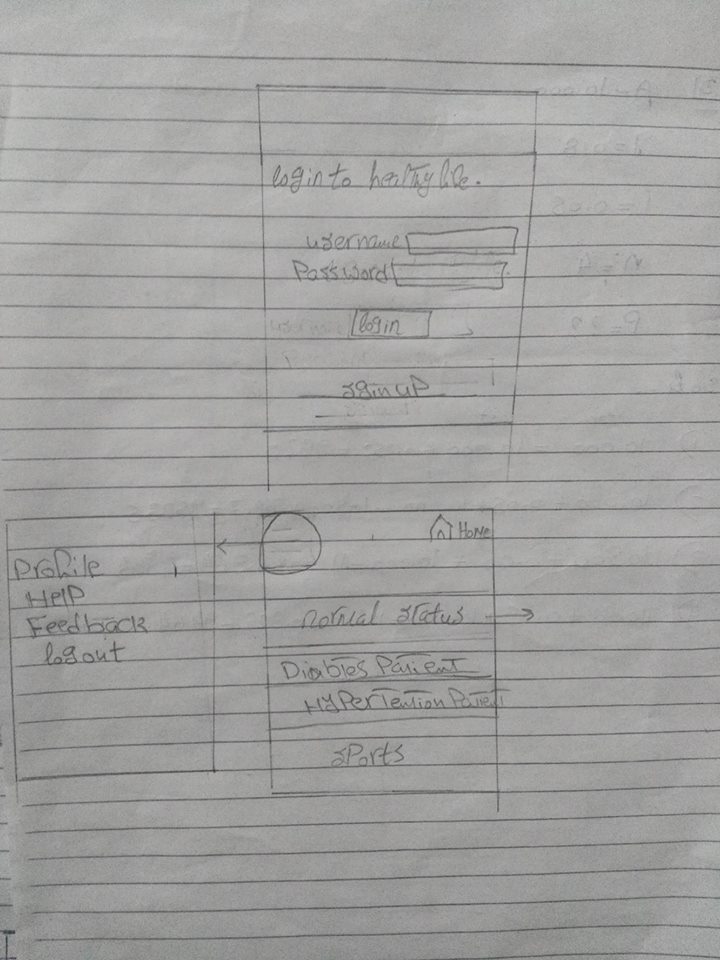 login to healthy life.
username
Password
login
sginup
Home
Profile
Help
Feedback
logout
normal status
Diabies Patient
HyPertention Patient
sports